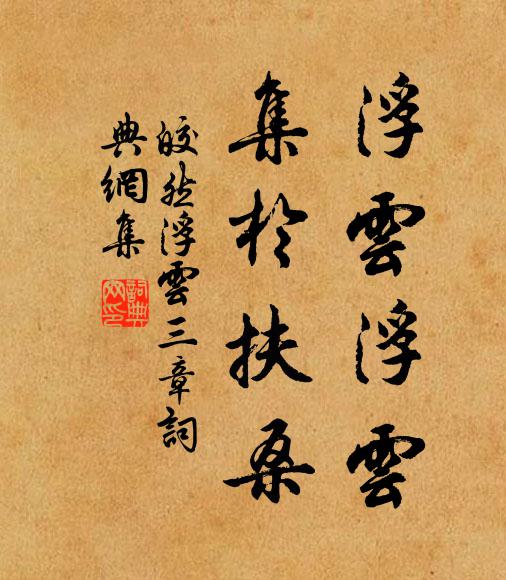 浮雲浮雲
集於扶桑
皎然浮雲三章詞
典網集
詞典
网印